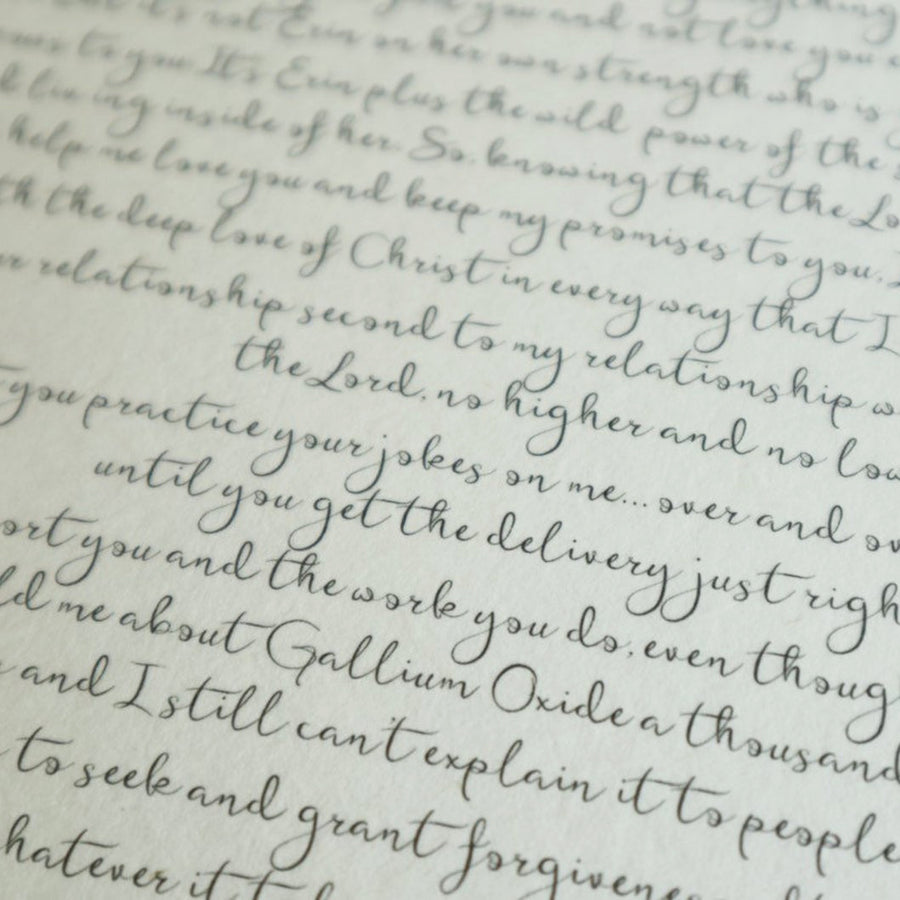 you and not love you
it's not Erin on her own strength who is
to you. It's Erin plus the wild power of the
living inside of her. So, knowing that the Lo
help me love you and keep my promises to you.
th the deep love of Christ in every way that I
relationship second to my relationship w
the Lord, no higher and no low
you practice your jokes on me... over and ov
until you get the delivery just righ
ort you and the work you do, even thoug
ld me about Gallium Oxide a thousand
and I still can't explain it to people
to seek and grant forgivenes
hatever it t